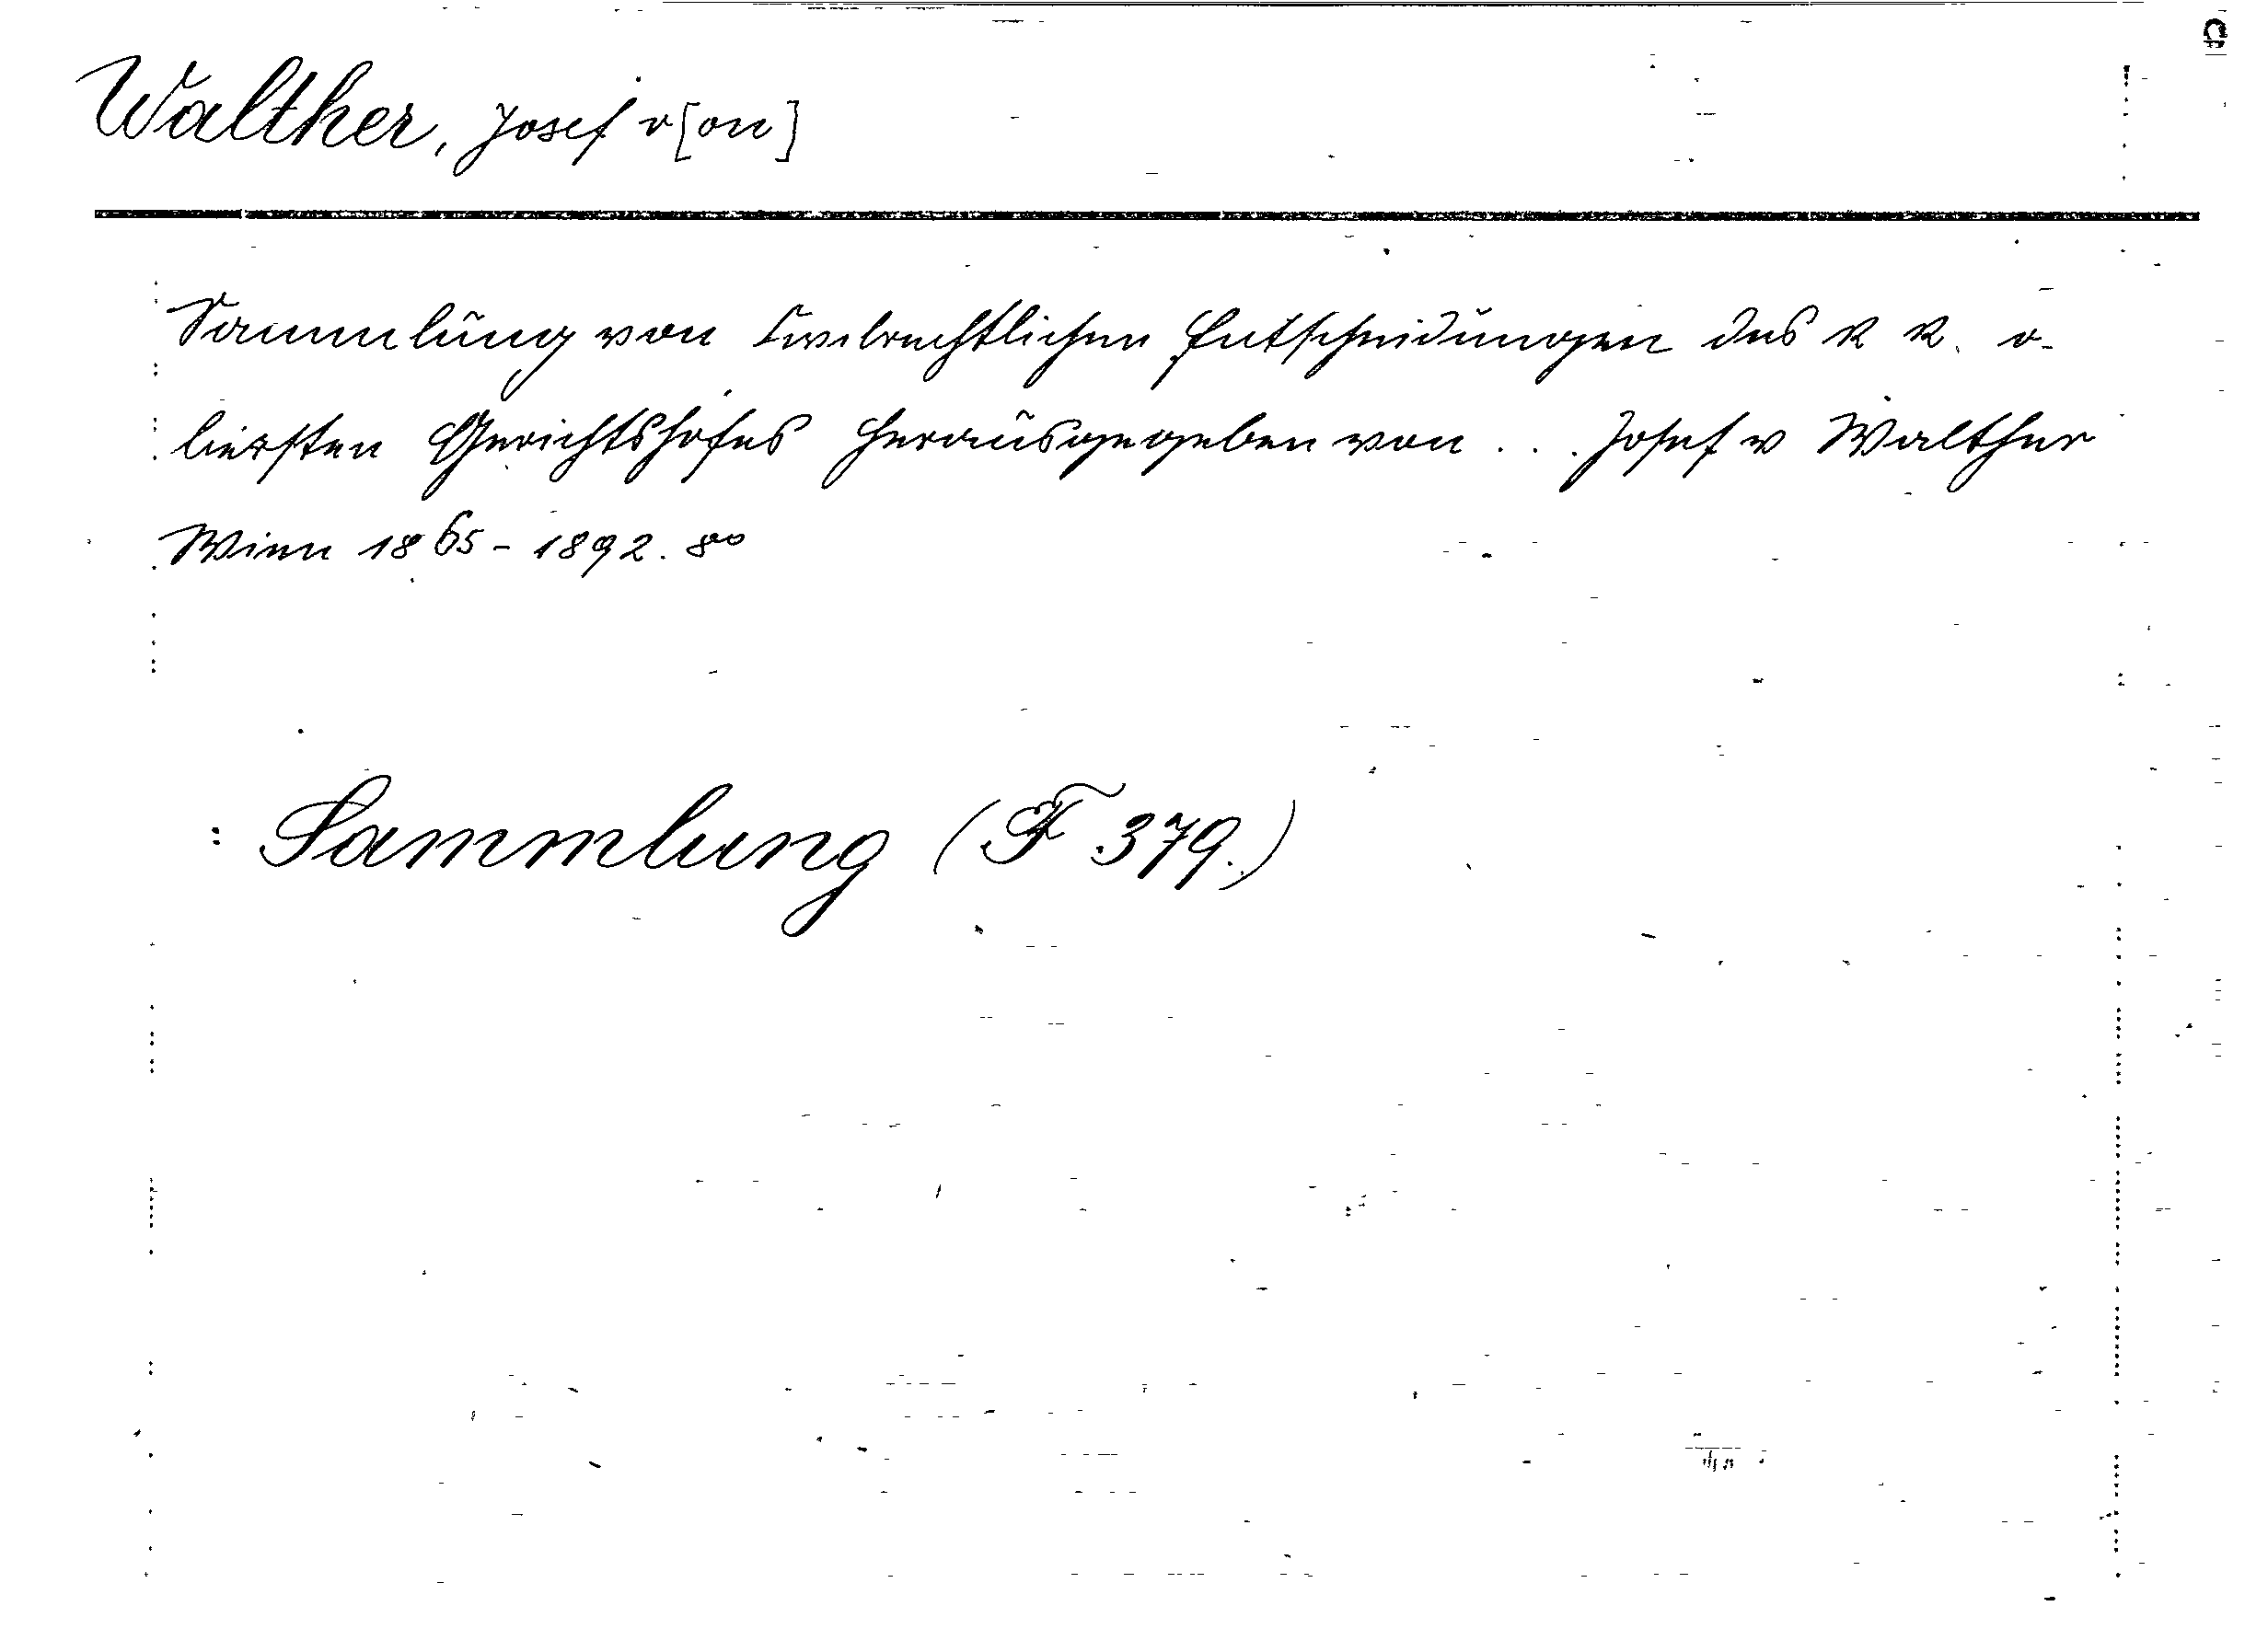 Walther, Josef v[on]
Sammlung von Civilrechtlichen Entscheidungen des k k. o-
bersten Gerichtshofes herausgegeben von . . . Josef v Walther
Wien 1865 - 1892. 8°
: Sammlung (F 379.)